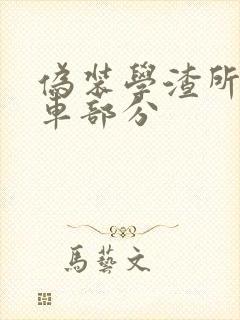 偽裝學渣所
車部分
馬藝文